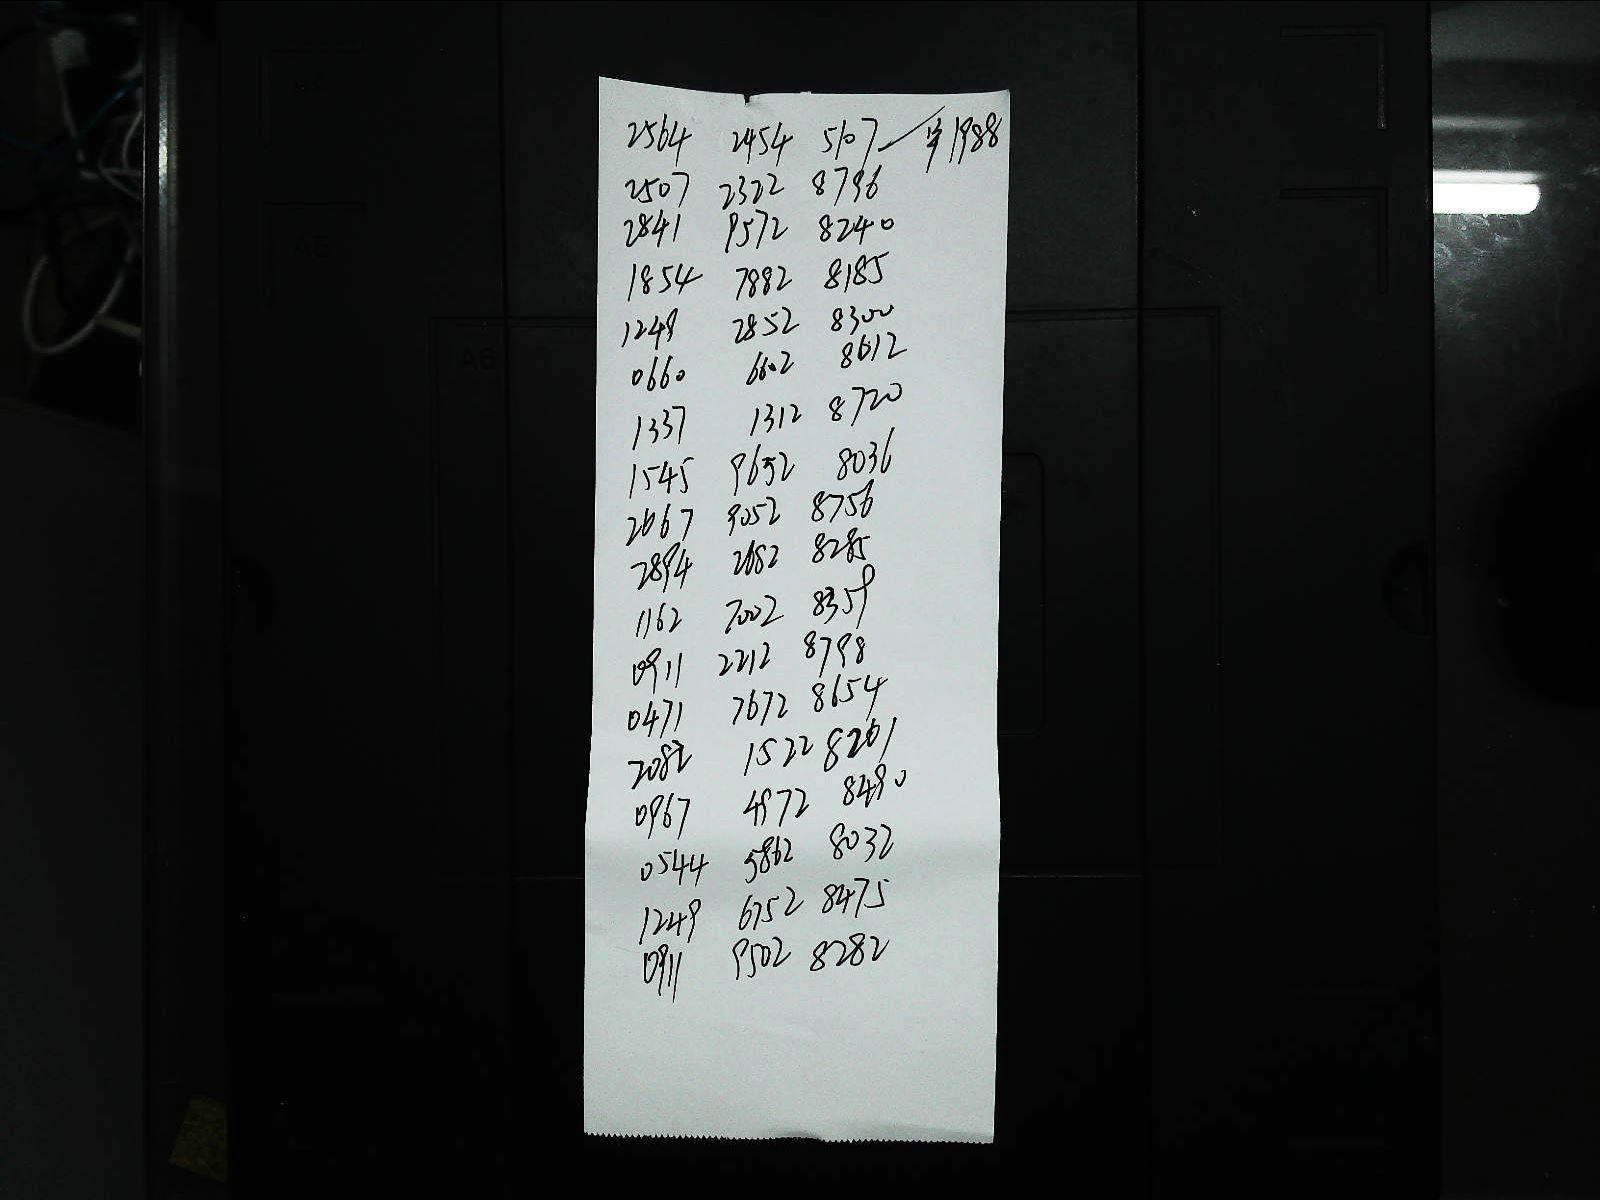 2564 2454 5107 单1988
2507 2322 8796
2841 9572 8240
1854 7882 8185
1249 2852 8300
0660 6602 8612
1337 1312 8720
1545 9652 8036
2667 9052 8756
2894 2682 8285
1162 7002 8359
0911 2212 8798
0471 7672 8654
2082 1522 8261
0967 4972 8490
0544 5862 8032
1249 6752 8475
0911 9502 8282
A6